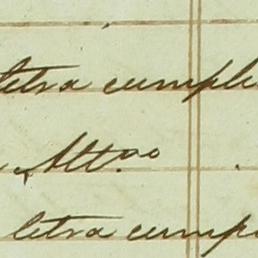 letra cumpli
Altt.ᵒᵒ
letra cump